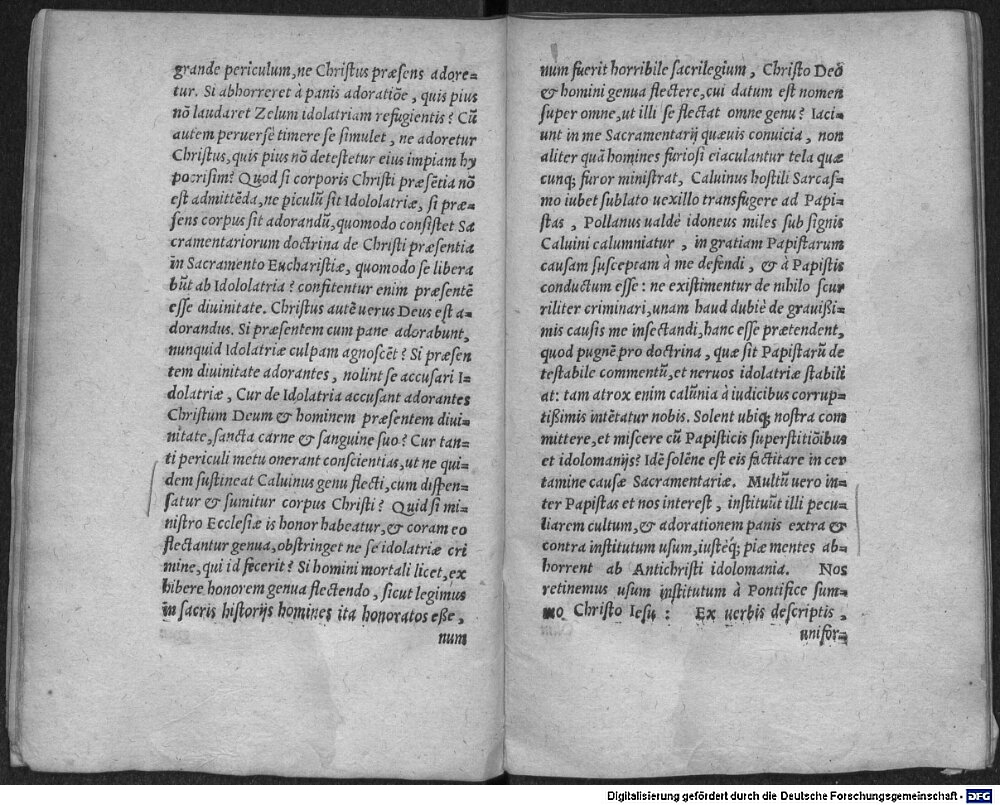 grande periculum, ne Christus præsens adore=
tur. Si abhorreret à panis adoratiõe, quis pius
nõ laudaret Zelum idolatriam refugientis? Cũ
autem peruersè timere se simulet, ne adoretur
Christus, quis pius nõ detestetur eius impiam hy
pocrisim? Quod si corporis Christi præsẽtia nõ
est admittẽda, ne piculũ sit Idololatriæ, si præ=
sens corpus sit adorandũ, quomodo consistet Sa
cramentariorum doctrina de Christi præsentia
in Sacramento Eucharistiæ, quomodo se libera
bũt ab Idololatria? confitentur enim præsentẽ
esse diuinitate. Christus autẽ uerus Deus est a=
dorandus. Si præsentem cum pane adorabunt,
nunquid Idolatriæ culpam agnoscẽt? Si præsen
tem diuinitate adorantes, nolint se accusari I=
dolatriæ, Cur de Idolatria accusant adorantes
Christum Deum & hominem præsentem diui=
nitate, sancta carne & sanguine suo? Cur tan=
ti periculi metu onerant conscientias, ut ne qui=
dem sustineat Caluinus genu flecti, cum dispen=
satur & sumitur corpus Christi? Quid si mi=
nistro Ecclesiæ is honor habeatur, & coram eo
flectantur genua, obstringet ne se idolatriæ cri
mine, qui id fecerit? Si homini mortali licet, ex
hibere honorem genua flectendo, sicut legimus
in sacris historijs homines ita honoratos esse,
num
num fuerit horribile sacrilegium, Christo Deo
& homini genua flectere, cui datum est nomen
super omne, ut illi se flectat omne genu? Iaci=
unt in me Sacramentarij quæuis conuicia, non
aliter quã homines furiosi eiaculantur tela quæ
cunq; furor ministrat, Caluinus hostili Sarcas=
mo iubet sublato uexillo transfugere ad Papi=
stas, Pollanus ualdè idoneus miles sub signis
Caluini calumniatur, in gratiam Papistarum
causam susceptam à me defendi, & à Papistis
conductum esse: ne existimentur de nihilo scur
riliter criminari, unam haud dubiè de grauißi=
mis causis me insectandi, hanc esse prætendent,
quod pugnẽ pro doctrina, quæ sit Papistarũ de
testabile commentũ, et neruos idolatriæ stabili
at: tam atrox enim calũnia à iudicibus corrup=
tißimis intẽtatur nobis. Solent ubiq; nostra com
mittere, et miscere cũ Papisticis superstitiõibus
et idolomanijs? Idẽ solẽne est eis factitare in cer
tamine causæ Sacramentariæ. Multũ uero in=
ter Papistas et nos interest, instituũt illi pecu=
liarem cultum, & adorationem panis extra &
contra institutum usum, iustèq; piæ mentes ab=
horrent ab Antichristi idolomania. Nos
retinemus usum institutum à Pontifice sum=
mo Christo Iesu: Ex uerbis descriptis,
unifor=
Digitalisierung gefördert durch die Deutsche Forschungsgemeinschaft - DFG